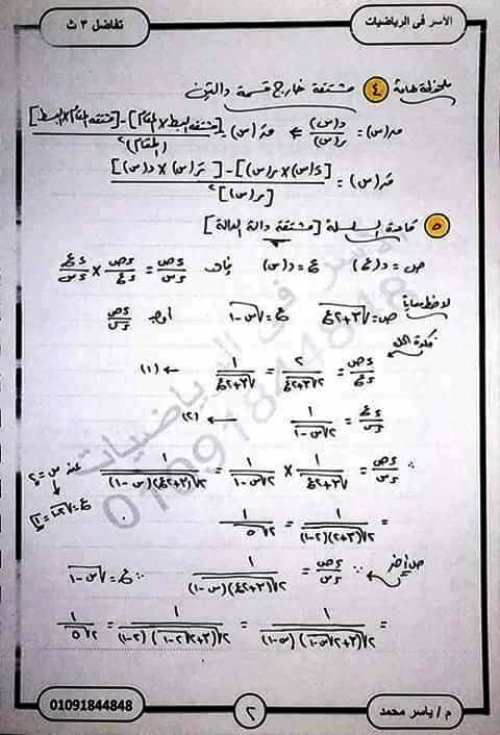 الأسر فى الرياضيات
تفاضل ٣ ث
ملحوظة هامة ٤ مشتقة خارج قسمة دالتين
قـ(س) = د(س)/ر(س) ⇐ قَـ(س) = [مشتقه البسط × المقام] - [مشتقه المقام × البسط] / (المقام)٢
قَـ(س) = [دَ(س) × ر(س)] - [رَ(س) × د(س)] / [ر(س)]٢
٥ قاعدة السلسلة [مشتقة دالة الدالة]
ص = د(ع) ع = د(س) فإن ءص/ءس = ءص/ءع × ءع/ءس
لاحظ معايا ص = √(٣+٢ع) ع = √(س-١) أوجد ءص/ءس
فكرة الحل
ءص/ءع = ٢/(٢√(٣+٢ع)) = ١/√(٣+٢ع) ← (١)
ءع/ءس = ١/(٢√(س-١)) ← (٢)
∴ ءص/ءس = ١/√(٣+٢ع) × ١/(٢√(س-١)) = ١/(٢√((٣+٢ع)(س-١))) عند س = ٢
ع = √(٢-١) = √١
= ١/(٢√((٣+٢)(٢-١))) = ١/(٢√٥)
حل أخر
∴ ءص/ءس = ١/(٢√((٣+٢ع)(س-١))) ∵ ع = √(س-١)
= ١/(٢√((٣+٢√(س-١))(س-١))) = ١/(٢√((٣+٢√(٢-١))(٢-١))) = ١/(٢√٥)
الأسر فى الرياضيات
01091844848
01091844848
٢
م / ياسر محمد